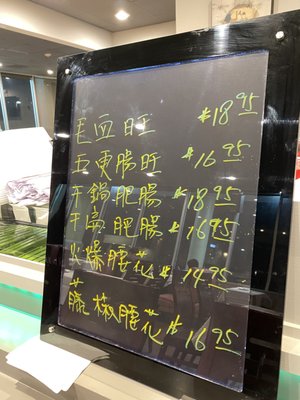 毛血旺 $18.95
五更腸旺 $16.95
干鍋肥腸 $18.95
干扁肥腸 $16.95
火爆腰花 $14.95
藤椒腰花 $16.95